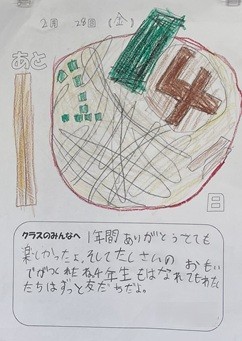 2月28日(金)
あと
14
日
クラスのみんなへ 1年間ありがとうとても
楽しかったよ。そしてたくさんの おもい
でがつくれたね4年生もはなれてもわた
したちはずっと友だちだよ。